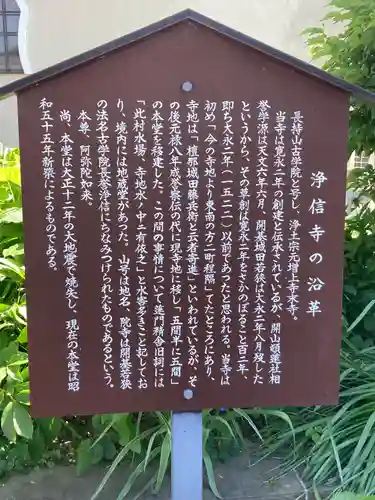 浄信寺の沿革
長持山古学院と号し、浄土宗元増上寺末寺。
当寺は寛永二年の創建と伝されているが、開山頓蓮社相
誉学源は天文六年六月、開基城田若狭は大永二年八月残した
というから、その草創は寛永二年をさかのぼること百二年、
即ち大永二年(一五二二)以前であったと思われる。当寺は
初め「今の寺地より東南の方二町程隔」てたところにあり、
寺地は「檀那城田藤左衛と云者寄進」といわれているが、そ
の後元禄八年成誉察応の代に現寺地に移し「五間半に五間」
の本堂を移建した。この間の事情について蓮門精舎旧詞には
「此村水場、寺地水ノ中ニ有依之」と水害多きこと記してお
り、境内には地蔵堂があった。山号は地名、院寺は開基若狭
の法名古学院長誉浄信にちなみつけられたものであるという。
本尊、阿弥陀如来
尚、本堂は大正十二年の大地震で焼失し、現在の本堂は昭
和五十五年新築によるものである。